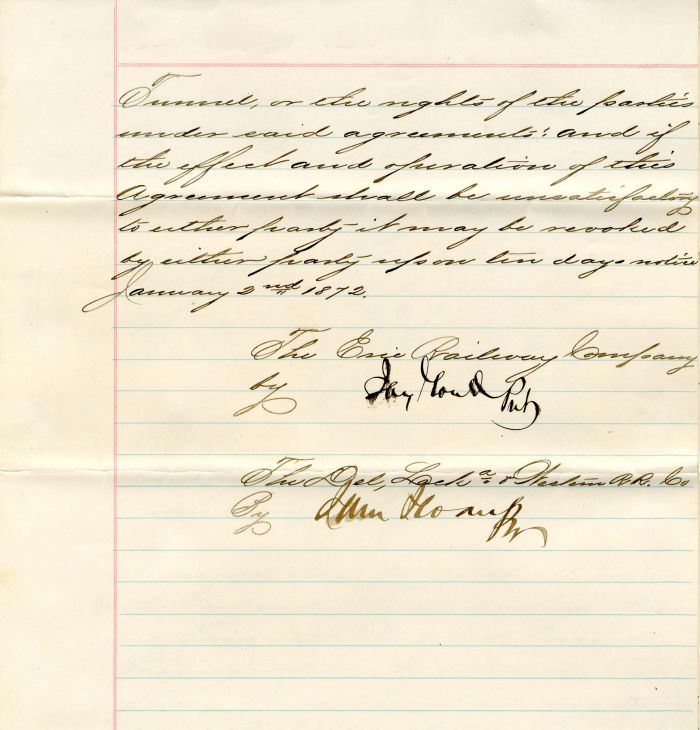 Tunnel, or the rights of the parties
under said agreements: and if
the effect and operation of this
Agreement shall be unsatisfactory
to either party it may be revoked
by either party upon ten days notice
January 2nd 1872.
The Erie Railway Company
by Jay Gould Prt
The Del, Lack a & Western R.R. Co
By Sam Sloan Pr